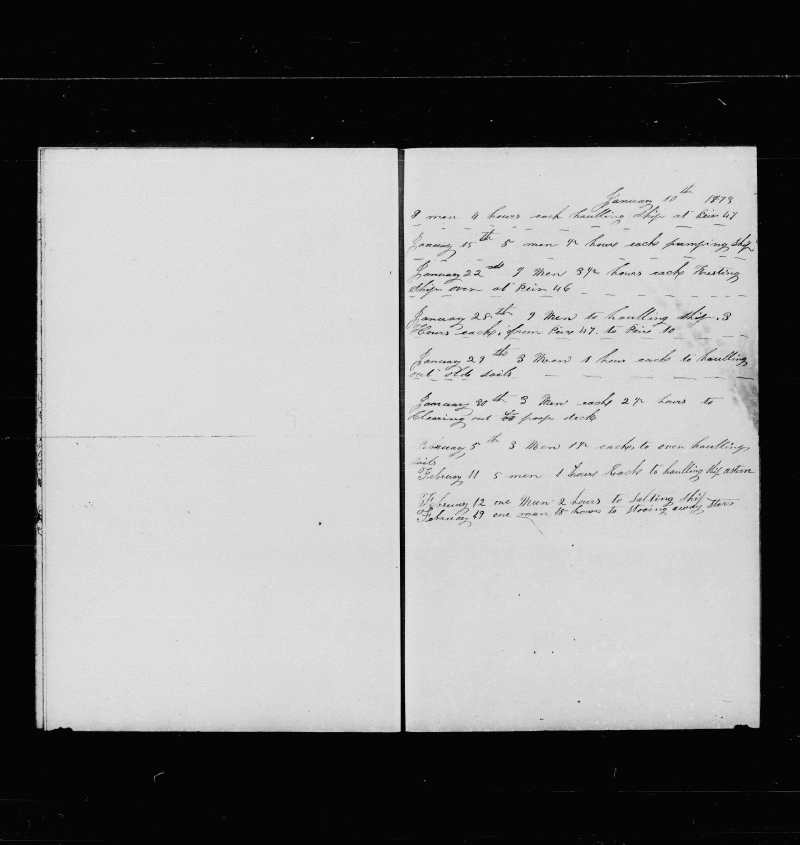 January 10th 1873
9 men 4 hours each haulling Ship at Peir 47
January 15th 5 men 4 hours each pumping Ship
January 22 9 Men 3 hours each
Ship over at Peir 46
January 28th 9 Men to haulling ship. 3
Hours each, from Peir 47. to Peir 10
January 29th 3 Men 1 hour each to haulling
out old sails
January 30th 3 Men each 2 hours to
Clearing out poop deck
February 5th 3 Men each to over haulling
sails
February 11 5 men 1 hours Each to haulling ship astern
February 12 one Man 2 hours to Salting Ship
February 19 one man 18 hours to stooing away Stors